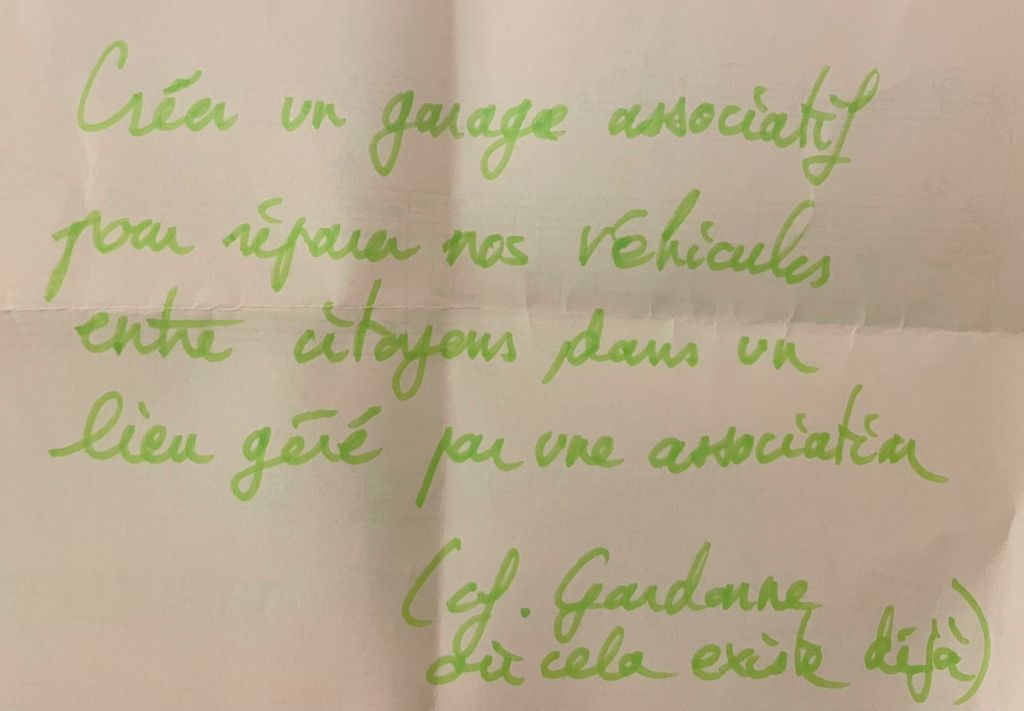 Créer un garage associatif
pour réparer nos véhicules
entre citoyens dans un
lieu géré par une association
(cf. Gardanne
où cela existe déjà)